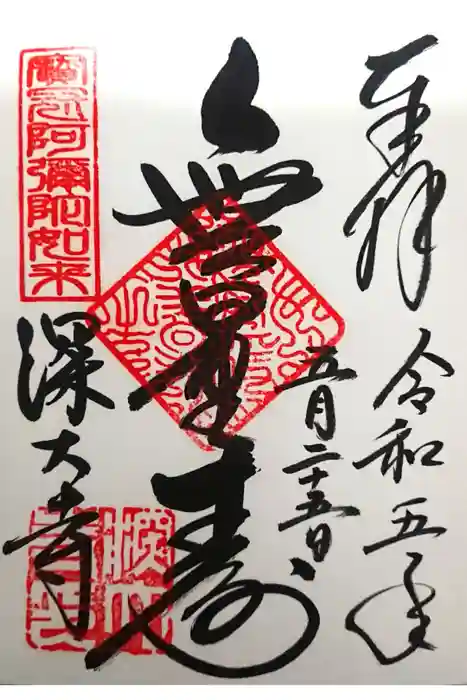 奉拝
令和五年
五月二十五日
無量寿
寳冠阿彌陀如来
深大寺